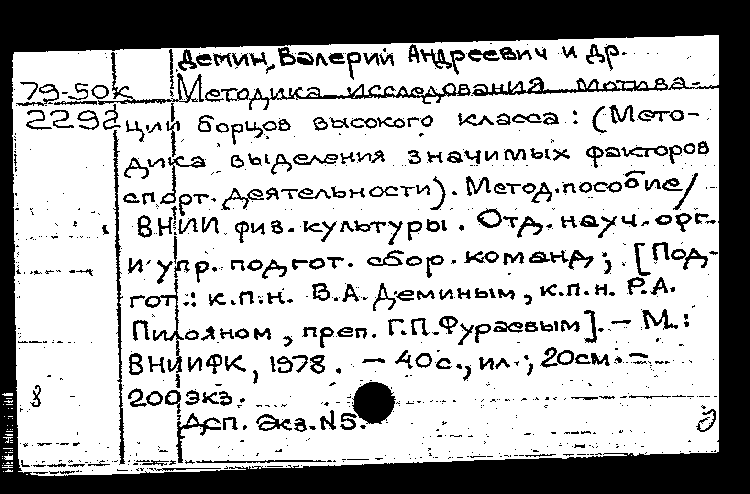 Демин, Валерий Андреевич и др.
79-50к Методика исследования мотива-
2292 ции борцов высокого класса: (Мето-
дика выделения значимых факторов
спорт. деятельности). Метод. пособие/
ВНИИ физ. культуры. Отд. науч. орг.
и упр. подгот. сбор. команд; [Под-
гот.: к.п.н. В.А. Деминым, к.п.н. Р.А.
Пилояном, преп. Г.П. Фураевым]. – М.:
ВНИИФК, 1978. – 40с., ил.; 20см. –
8 200 экз.
Деп. Экз. N5.